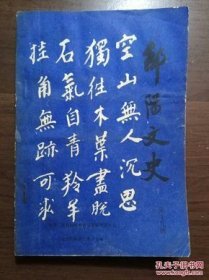 邵陽文史
空山無人沉思
獨往木葉盡脫
石氣自青羚羊
挂角無跡可求